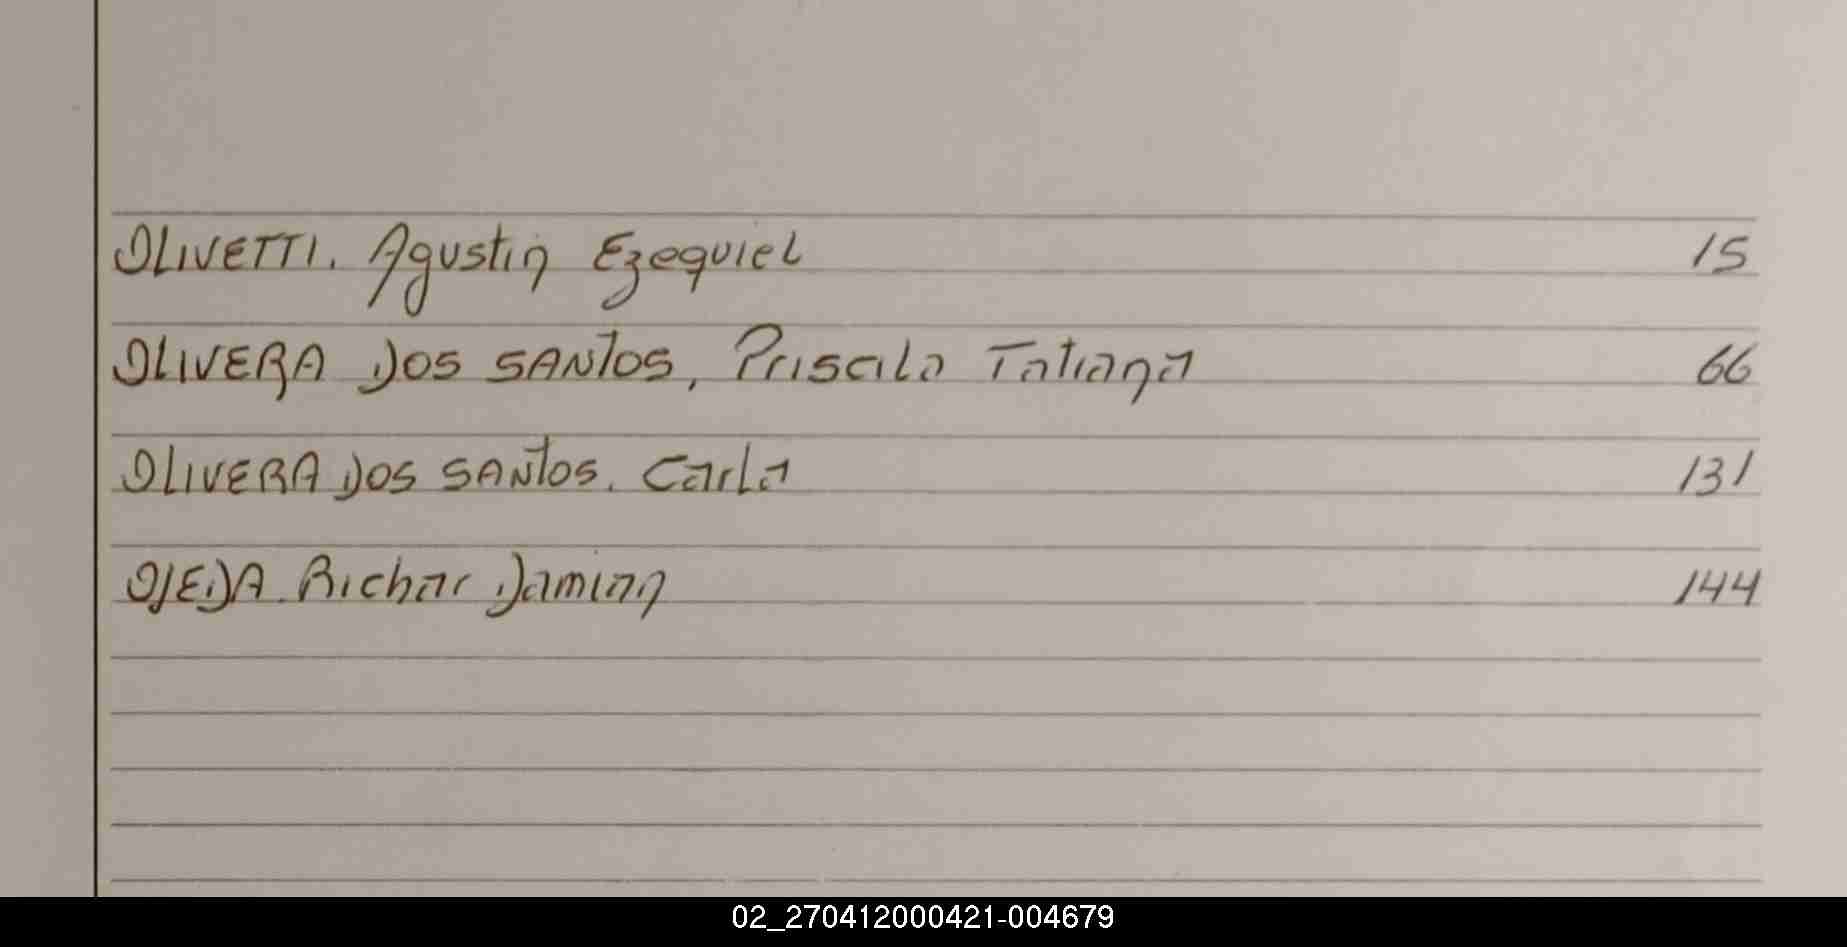 OLIVETTI. Agustin Ezequiel 15
OLIVERA DOS SANTOS, Priscila Tatiana 66
OLIVERA DOS SANTOS. Carla 131
OJEDA. Richar Damian 144
02_270412000421-004679